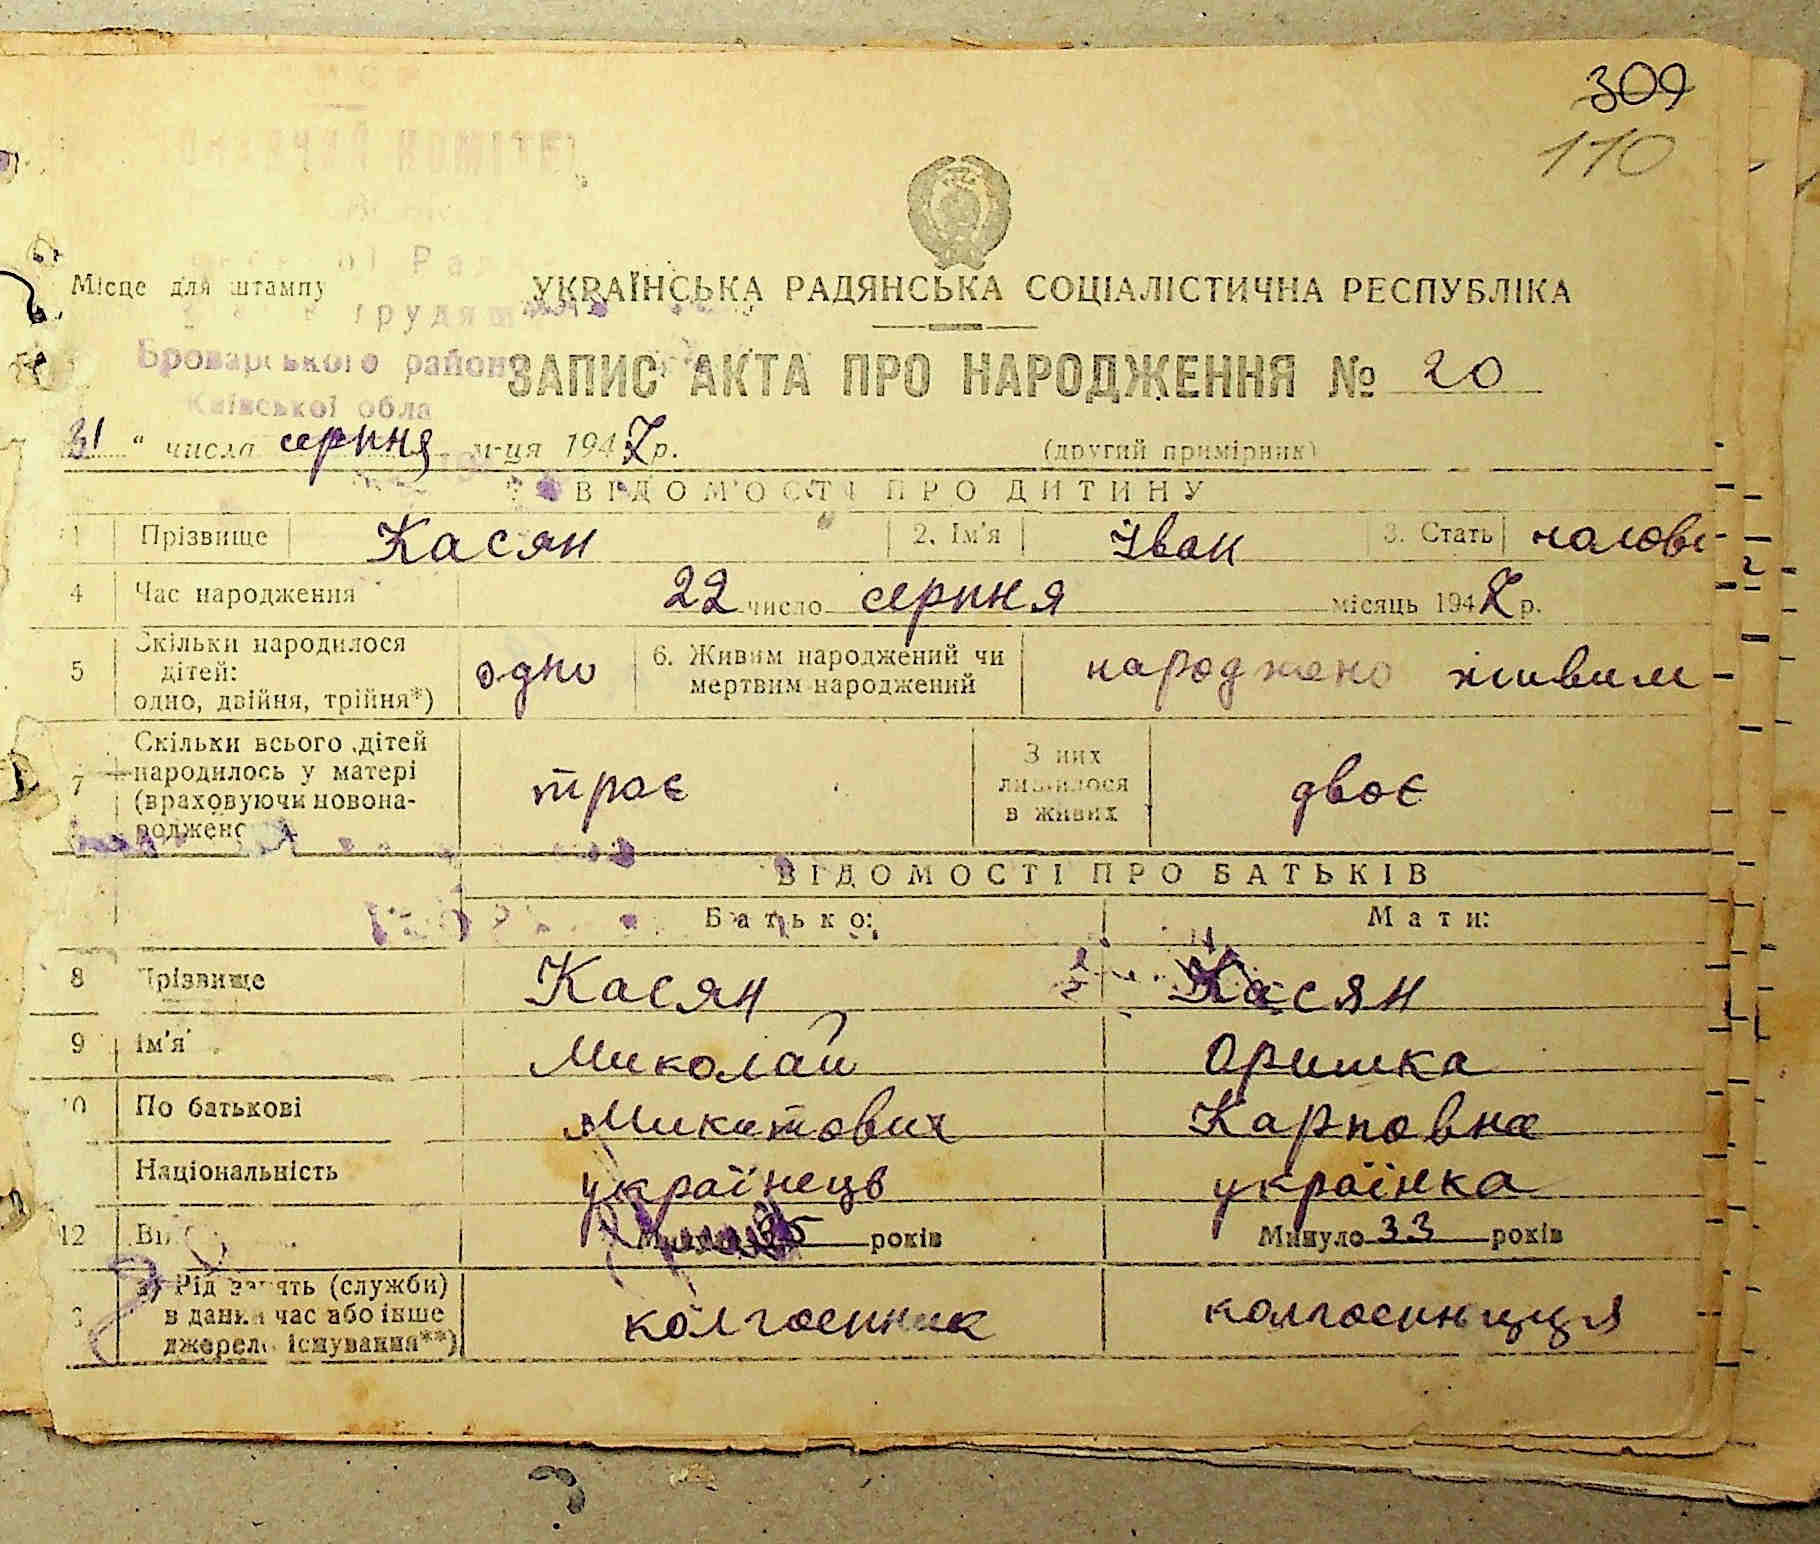 309
110
Місце для штампу
УКРАЇНСЬКА РАДЯНСЬКА СОЦІАЛІСТИЧНА РЕСПУБЛІКА
Броварського району
Київської обла
ЗАПИС АКТА ПРО НАРОДЖЕННЯ № 20
31 " числа серпня м-ця 1947 р.
(другий примірник)
ВІДОМОСТІ ПРО ДИТИНУ
1 Прізвище Касян 2. Ім'я Іван 3. Стать чолові
4 Час народження 22 число серпня місяць 1947 р.
5 Скільки народилося дітей: одно, двійня, трійня*) одно 6. Живим народжений чи мертвим народжений народжено живим
7 Скільки всього дітей народилось у матері (враховуючи новона-
троє З них лишилося в живих двоє
ВІДОМОСТІ ПРО БАТЬКІВ
Батько: Мати:
8 Прізвище Касян Касян
9 Ім'я Миколай Оришка
10 По батькові Микитович Карповна
Національність українець українка
12 35 років Минуло 33 років
а) Рід занять (служби) в даний час або інше джерело існування**) колгоспник колгоспниця